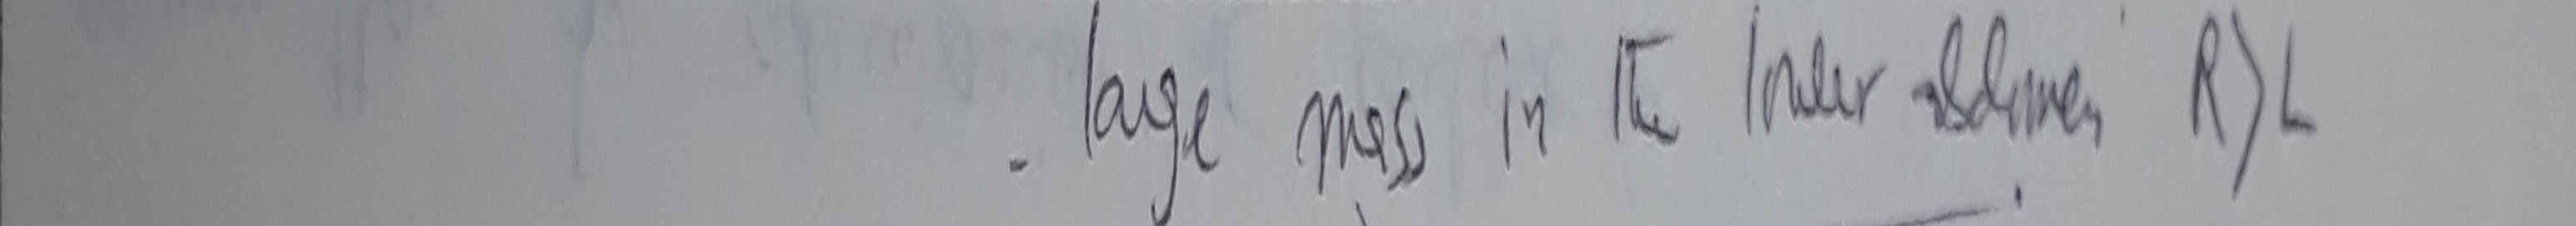 - large mass in the lower abdomen R>L